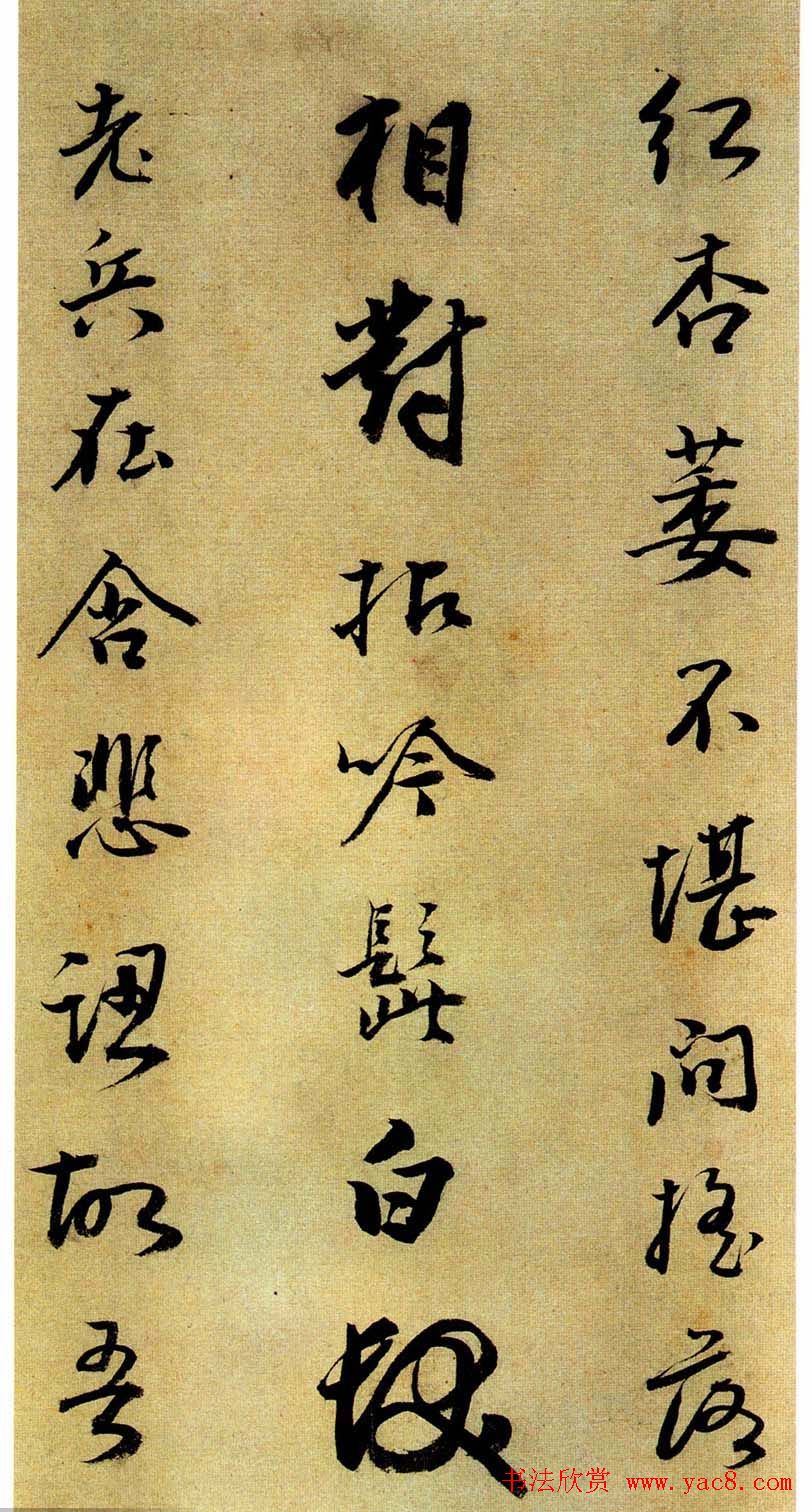 红杏萎不堪问摇落
相對拈吟髭白
老兵在含悲認故吾
书法欣赏 www.yac8.com